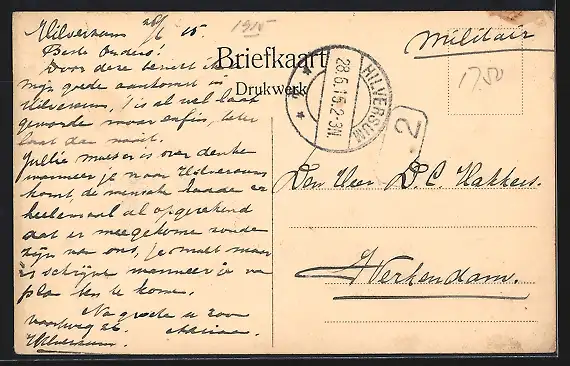 Hilversum 28/6 15.
1915
Militair
Beste Ouders!
Briefkaart
Drukwerk
HILVERSUM
28.6.15.2-3N
2
17,50
Door deze bericht ik
mijn goede aankomst in
Hilversum, 't is al wel laat
geworden maar enfin, beter
laat dan nooit.
Jullie moet er is over denke
wanneer je naar Hilversum
komt, de mensche hadde er
heelemaal al op gerekend
dat er meegekome zoude
zijn van ons, je moet maar
is schrijve wanneer je van
plan ben te kome.
Na groete u zoon
Hilversum.
Den Heer D. C. Hakkers.
Werkendam.